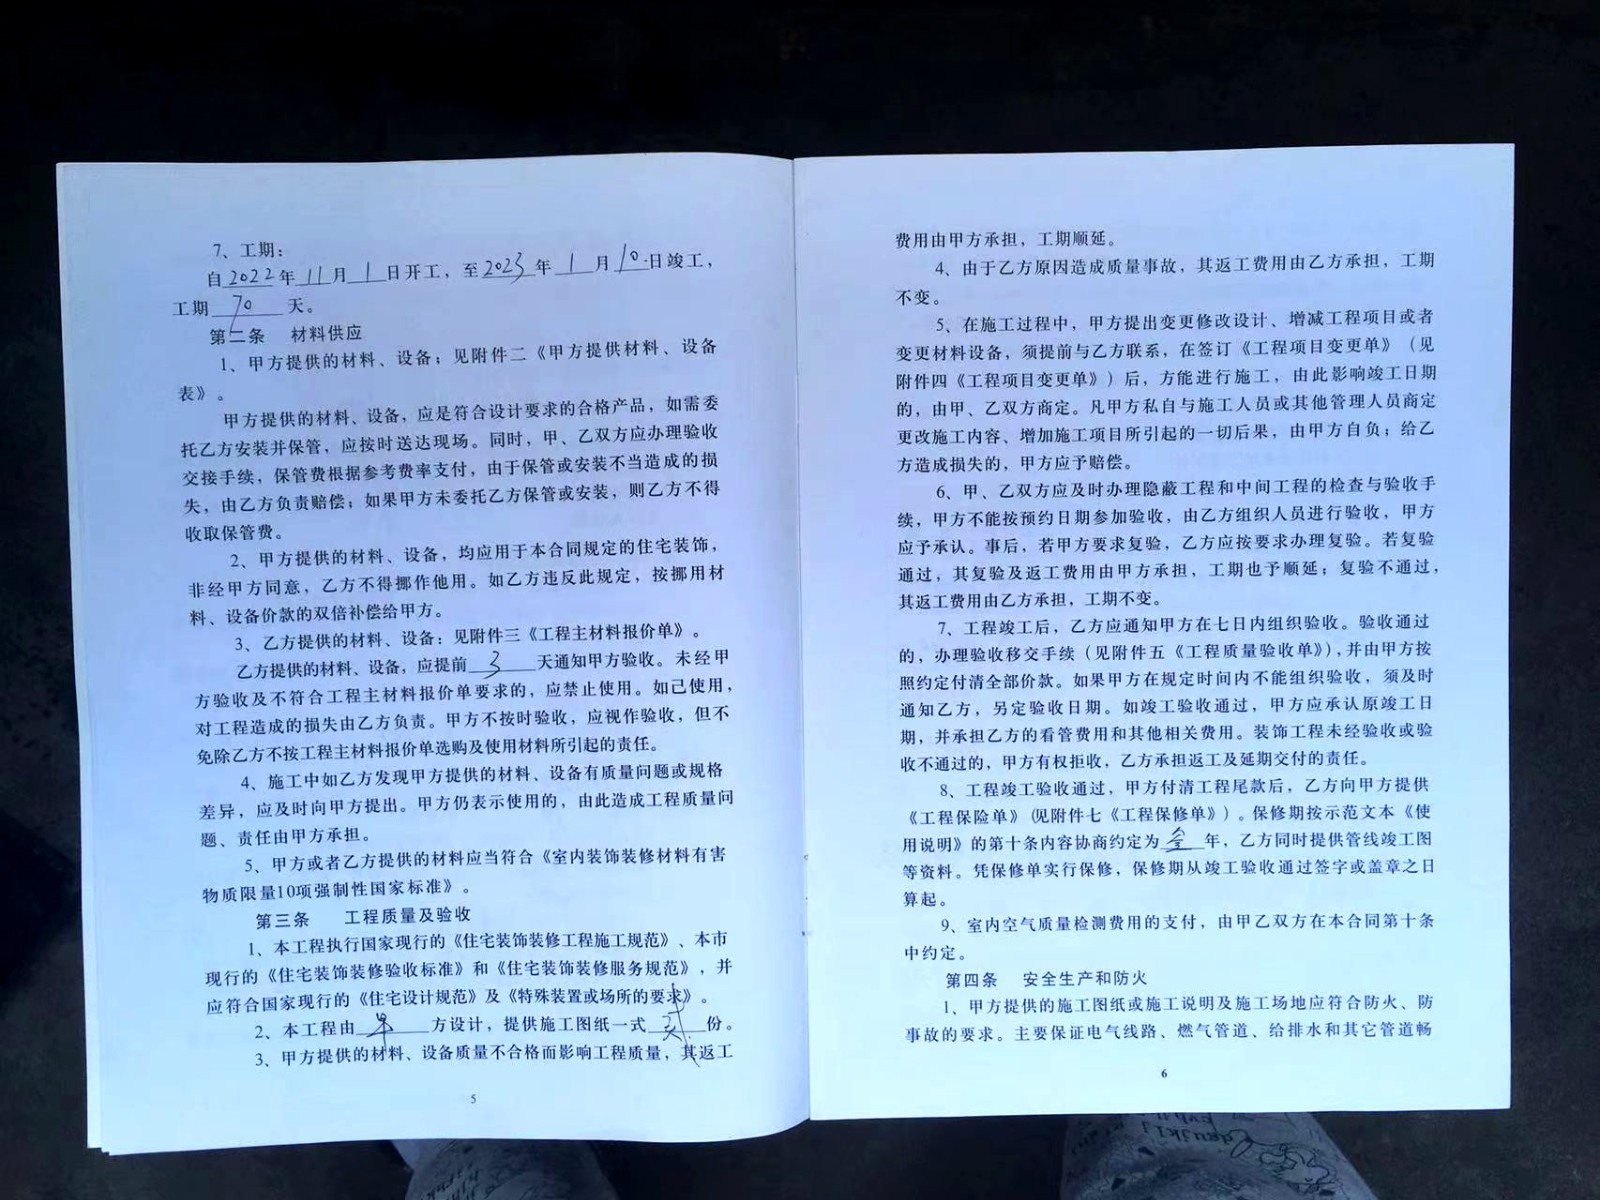 7、工期：
自2022年11月1日开工，至2023年1月10日竣工，
工期70天。
第二条 材料供应
1、甲方提供的材料、设备；见附件二《甲方提供材料、设备
表》。
甲方提供的材料、设备，应是符合设计要求的合格产品，如需委
托乙方安装并保管，应按时送达现场。同时，甲、乙双方应办理验收
交接手续，保管费根据参考费率支付，由于保管或安装不当造成的损
失，由乙方负责赔偿；如果甲方未委托乙方保管或安装，则乙方不得
收取保管费。
2、甲方提供的材料、设备，均应用于本合同规定的住宅装饰，
非经甲方同意，乙方不得挪作他用。如乙方违反此规定，按挪用材
料、设备价款的双倍补偿给甲方。
3、乙方提供的材料、设备：见附件三《工程主材料报价单》。
乙方提供的材料、设备，应提前3天通知甲方验收。未经甲
方验收及不符合工程主材料报价单要求的，应禁止使用。如己使用，
对工程造成的损失由乙方负责。甲方不按时验收，应视作验收，但不
免除乙方不按工程主材料报价单选购及使用材料所引起的责任。
4、施工中如乙方发现甲方提供的材料、设备有质量问题或规格
差异，应及时向甲方提出。甲方仍表示使用的，由此造成工程质量问
题、责任由甲方承担。
5、甲方或者乙方提供的材料应当符合《室内装饰装修材料有害
物质限量10项强制性国家标准》。
第三条 工程质量及验收
1、本工程执行国家现行的《住宅装饰装修工程施工规范》、本市
现行的《住宅装饰装修验收标准》和《住宅装饰装修服务规范》，并
应符合国家现行的《住宅设计规范》及《特殊装置或场所的要求》。
2、本工程由方设计，提供施工图纸一式贰份。
3、甲方提供的材料、设备质量不合格而影响工程质量，其返工
5
费用由甲方承担，工期顺延。
4、由于乙方原因造成质量事故，其返工费用由乙方承担，工期
不变。
5、在施工过程中，甲方提出变更修改设计、增减工程项目或者
变更材料设备，须提前与乙方联系，在签订《工程项目变更单》（见
附件四《工程项目变更单》）后，方能进行施工，由此影响竣工日期
的，由甲、乙双方商定。凡甲方私自与施工人员或其他管理人员商定
更改施工内容、增加施工项目所引起的一切后果，由甲方自负；给乙
方造成损失的，甲方应予赔偿。
6、甲、乙双方应及时办理隐蔽工程和中间工程的检查与验收手
续，甲方不能按预约日期参加验收，由乙方组织人员进行验收，甲方
应予承认。事后，若甲方要求复验，乙方应按要求办理复验。若复验
通过，其复验及返工费用由甲方承担，工期也予顺延；复验不通过，
其返工费用由乙方承担，工期不变。
7、工程竣工后，乙方应通知甲方在七日内组织验收。验收通过
的，办理验收移交手续（见附件五《工程质量验收单》），并由甲方按
照约定付清全部价款。如果甲方在规定时间内不能组织验收，须及时
通知乙方，另定验收日期。如竣工验收通过，甲方应承认原竣工日
期，并承担乙方的看管费用和其他相关费用。装饰工程未经验收或验
收不通过的，甲方有权拒收，乙方承担返工及延期交付的责任。
8、工程竣工验收通过，甲方付清工程尾款后，乙方向甲方提供
《工程保险单》（见附件七《工程保修单》）。保修期按示范文本《使
用说明》的第十条内容协商约定为叁年，乙方同时提供管线竣工图
等资料。凭保修单实行保修，保修期从竣工验收通过签字或盖章之日
算起。
9、室内空气质量检测费用的支付，由甲乙双方在本合同第十条
中约定。
第四条 安全生产和防火
1、甲方提供的施工图纸或施工说明及施工场地应符合防火、防
事故的要求。主要保证电气线路、燃气管道、给排水和其它管道畅
6